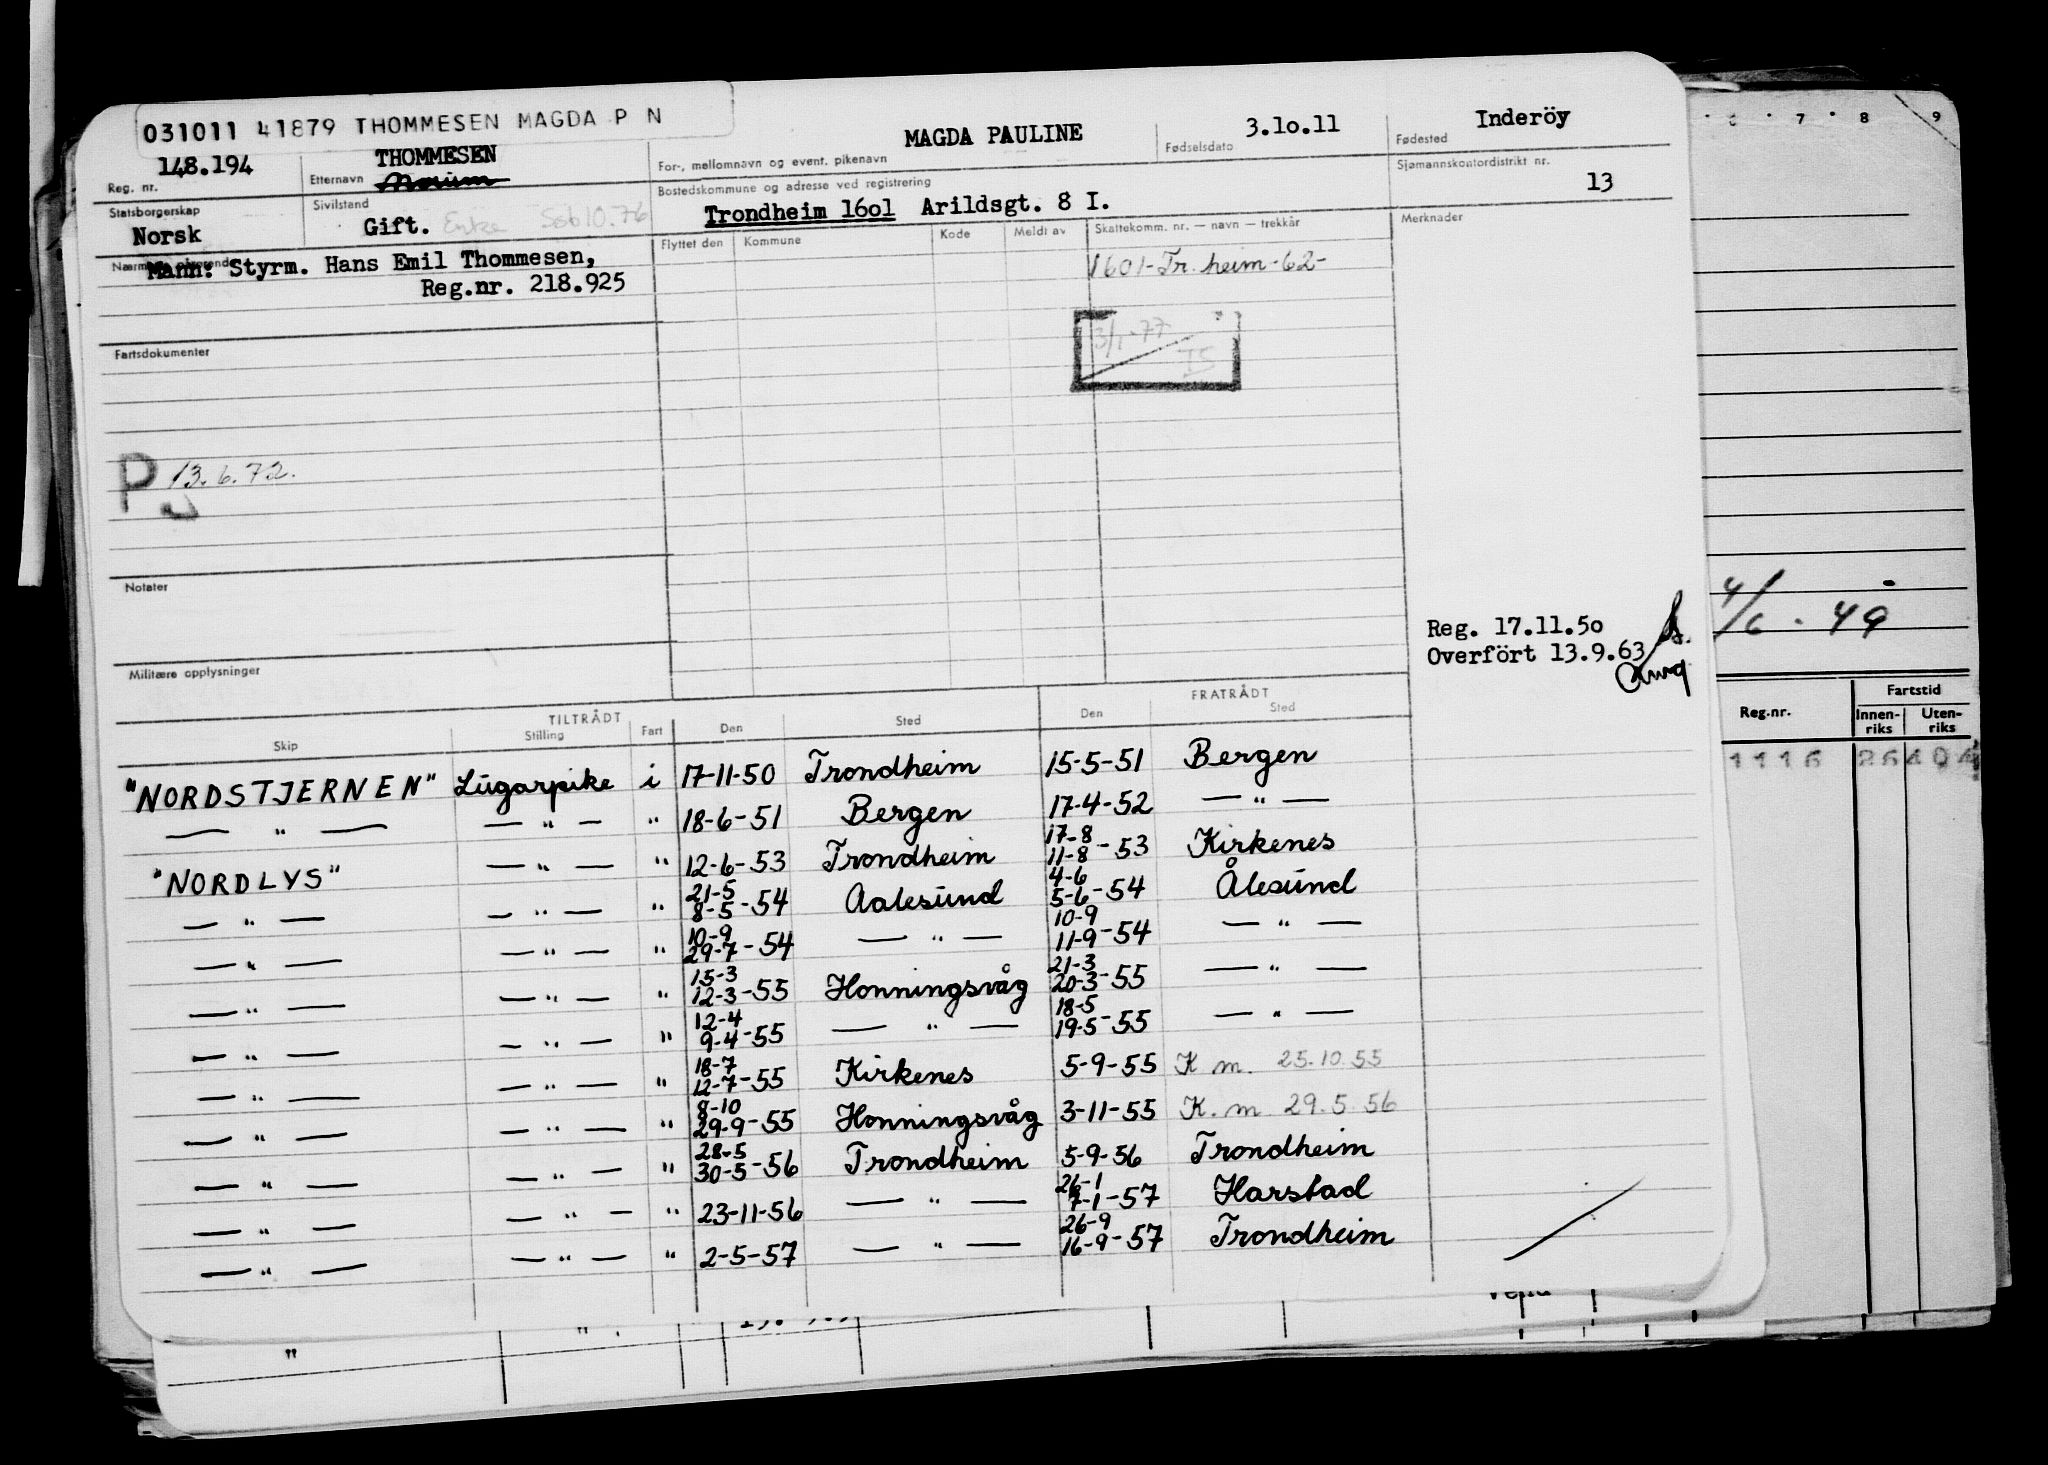 031011 41879 THOMMESEN MAGDA P N
148.194
Reg. nr.
THOMMESEN
Etternavn
MAGDA PAULINE
For-, mellomnavn og event. pikenavn
3.10.11
Fødselsdato
Inderöy
Fødested
Statsborgerskap
Norsk
Sivilstand
Gift. Enke
Bostedskommune og adresse ved registrering
Trondheim 16o1 Arildsgt. 8 I.
Sjømannskontordistrikt nr.
13
Mann: Styrm. Hans Emil Thommesen,
Reg.nr. 218.925
Flyttet den Kommune Kode Meldt av Skattekomm. nr. — navn — trekkår
Merknader
1601-Tr.heim-62-
3/1-77
Fartsdokumenter
P 13.6.72.
Notater
Militære opplysninger
Reg. 17.11.5o
Overfört 13.9.63
TILTRÅDT FRATRÅDT
Skip Stilling Fart Den Sted Den Sted
"NORDSTJERNEN" Lugarpike i 17-11-50 Trondheim 15-5-51 Bergen
— " — — " — " 18-6-51 Bergen 17-4-52 — " —
"NORDLYS" — " — " 12-6-53 Trondheim 17-8 11-8-53 Kirkenes
— " — — " — " 21-5 8-5-54 Aalesund 4-6 5-6-54 Ålesund
— " — — " — " 10-9 29-7-54 — " — 10-9 11-9-54 — " —
— " — — " — " 15-3 12-3-55 Honningsvåg 21-3 20-3-55 — " —
— " — — " — " 12-4 9-4-55 — " — 18-5 19-5-55 — " —
— " — — " — " 18-7 12-7-55 Kirkenes 5-9-55 K m. 25.10.55
— " — — " — " 8-10 29-9-55 Honningsvåg 3-11-55 K. m. 29.5.56
— " — — " — " 28-5 30-5-56 Trondheim 5-9-56 Trondheim
— " — — " — " 23-11-56 — " — 26-1 7-1-57 Harstad
— " — — " — " 2-5-57 — " — 26-9 16-9-57 Trondheim
7 8 9
4/6 . 49
Reg.nr. Fartstid
Innen-riks Uten-riks
1116